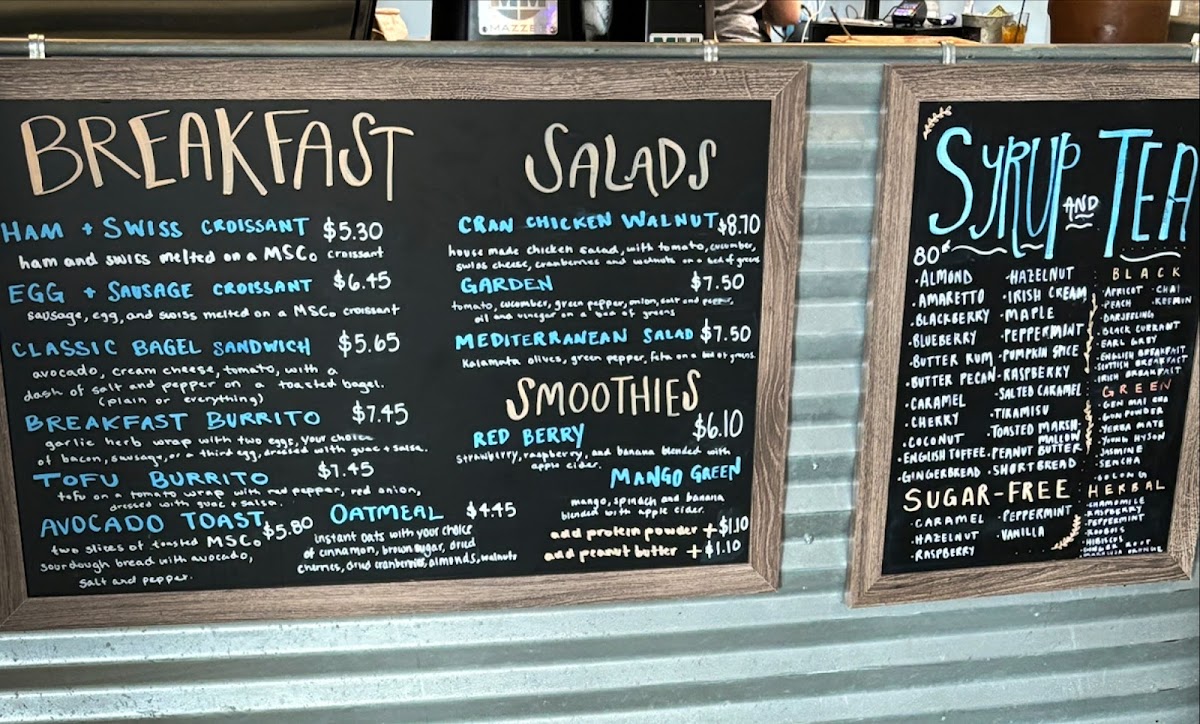 MAZZER
BREAKFAST
HAM + SWISS CROISSANT $5.30
ham and swiss melted on a MSCo croissant
EGG + SAUSAGE CROISSANT $6.45
sausage, egg, and swiss melted on a MSCo croissant
CLASSIC BAGEL SANDWICH $5.65
avocado, cream cheese, tomato, with a
dash of salt and pepper on a toasted bagel.
(plain or everything)
BREAKFAST BURRITO $7.45
garlic herb wrap with two eggs, your choice
of bacon, sausage, or a third egg, dressed with guac + salsa.
TOFU BURRITO $7.45
tofu on a tomato wrap with red pepper, red onion,
dressed with guac + salsa.
AVOCADO TOAST $5.80
two slices of toasted MSCo
sourdough bread with avocado,
salt and pepper.
OATMEAL $4.45
instant oats with your choice
of cinnamon, brown sugar, dried
cherries, dried cranberries, almonds, walnuts
SALADS
CRAN CHICKEN WALNUT $8.70
house made chicken salad, with tomato, cucumber,
swiss cheese, cranberries and walnuts on a bed of greens
GARDEN $7.50
tomato, cucumber, green pepper, onion, salt and pepper,
oil and vinegar on a bed of greens
MEDITERRANEAN SALAD $7.50
Kalamata olives, green pepper, feta on a bed of greens
SMOOTHIES
$6.10
RED BERRY
strawberry, raspberry, and banana blended with
apple cider.
MANGO GREEN
mango, spinach and banana
blended with apple cider.
add protein powder + $1.10
add peanut butter + $1.10
SYRUP AND TEA
80¢
• ALMOND
• AMARETTO
• BLACKBERRY
• BLUEBERRY
• BUTTER RUM
• BUTTER PECAN
• CARAMEL
• CHERRY
• COCONUT
• ENGLISH TOFFEE
• GINGERBREAD
• HAZELNUT
• IRISH CREAM
• MAPLE
• PEPPERMINT
• PUMPKIN SPICE
• RASPBERRY
• SALTED CARAMEL
• TIRAMISU
• TOASTED MARSH-
MALLOW
• PEANUT BUTTER
• SHORTBREAD
SUGAR-FREE
• CARAMEL
• HAZELNUT
• RASPBERRY
• PEPPERMINT
• VANILLA
BLACK
• APRICOT • CHAI
• PEACH • KEEMUN
• DARJEELING
• BLACK CURRANT
• EARL GREY
• ENGLISH BREAKFAST
• SCOTTISH BREAKFAST
• IRISH BREAKFAST
GREEN
• GEN MAI CHA
• GUN POWDER
• YERBA MATE
• YOUNG HYSON
• JASMINE
• SENCHA
• OOLONG
HERBAL
• CHAMOMILE
• RASPBERRY
• PEPPERMINT
• ROOIBOS
• HIBISCUS
• GINGER ROOT
ORANGE